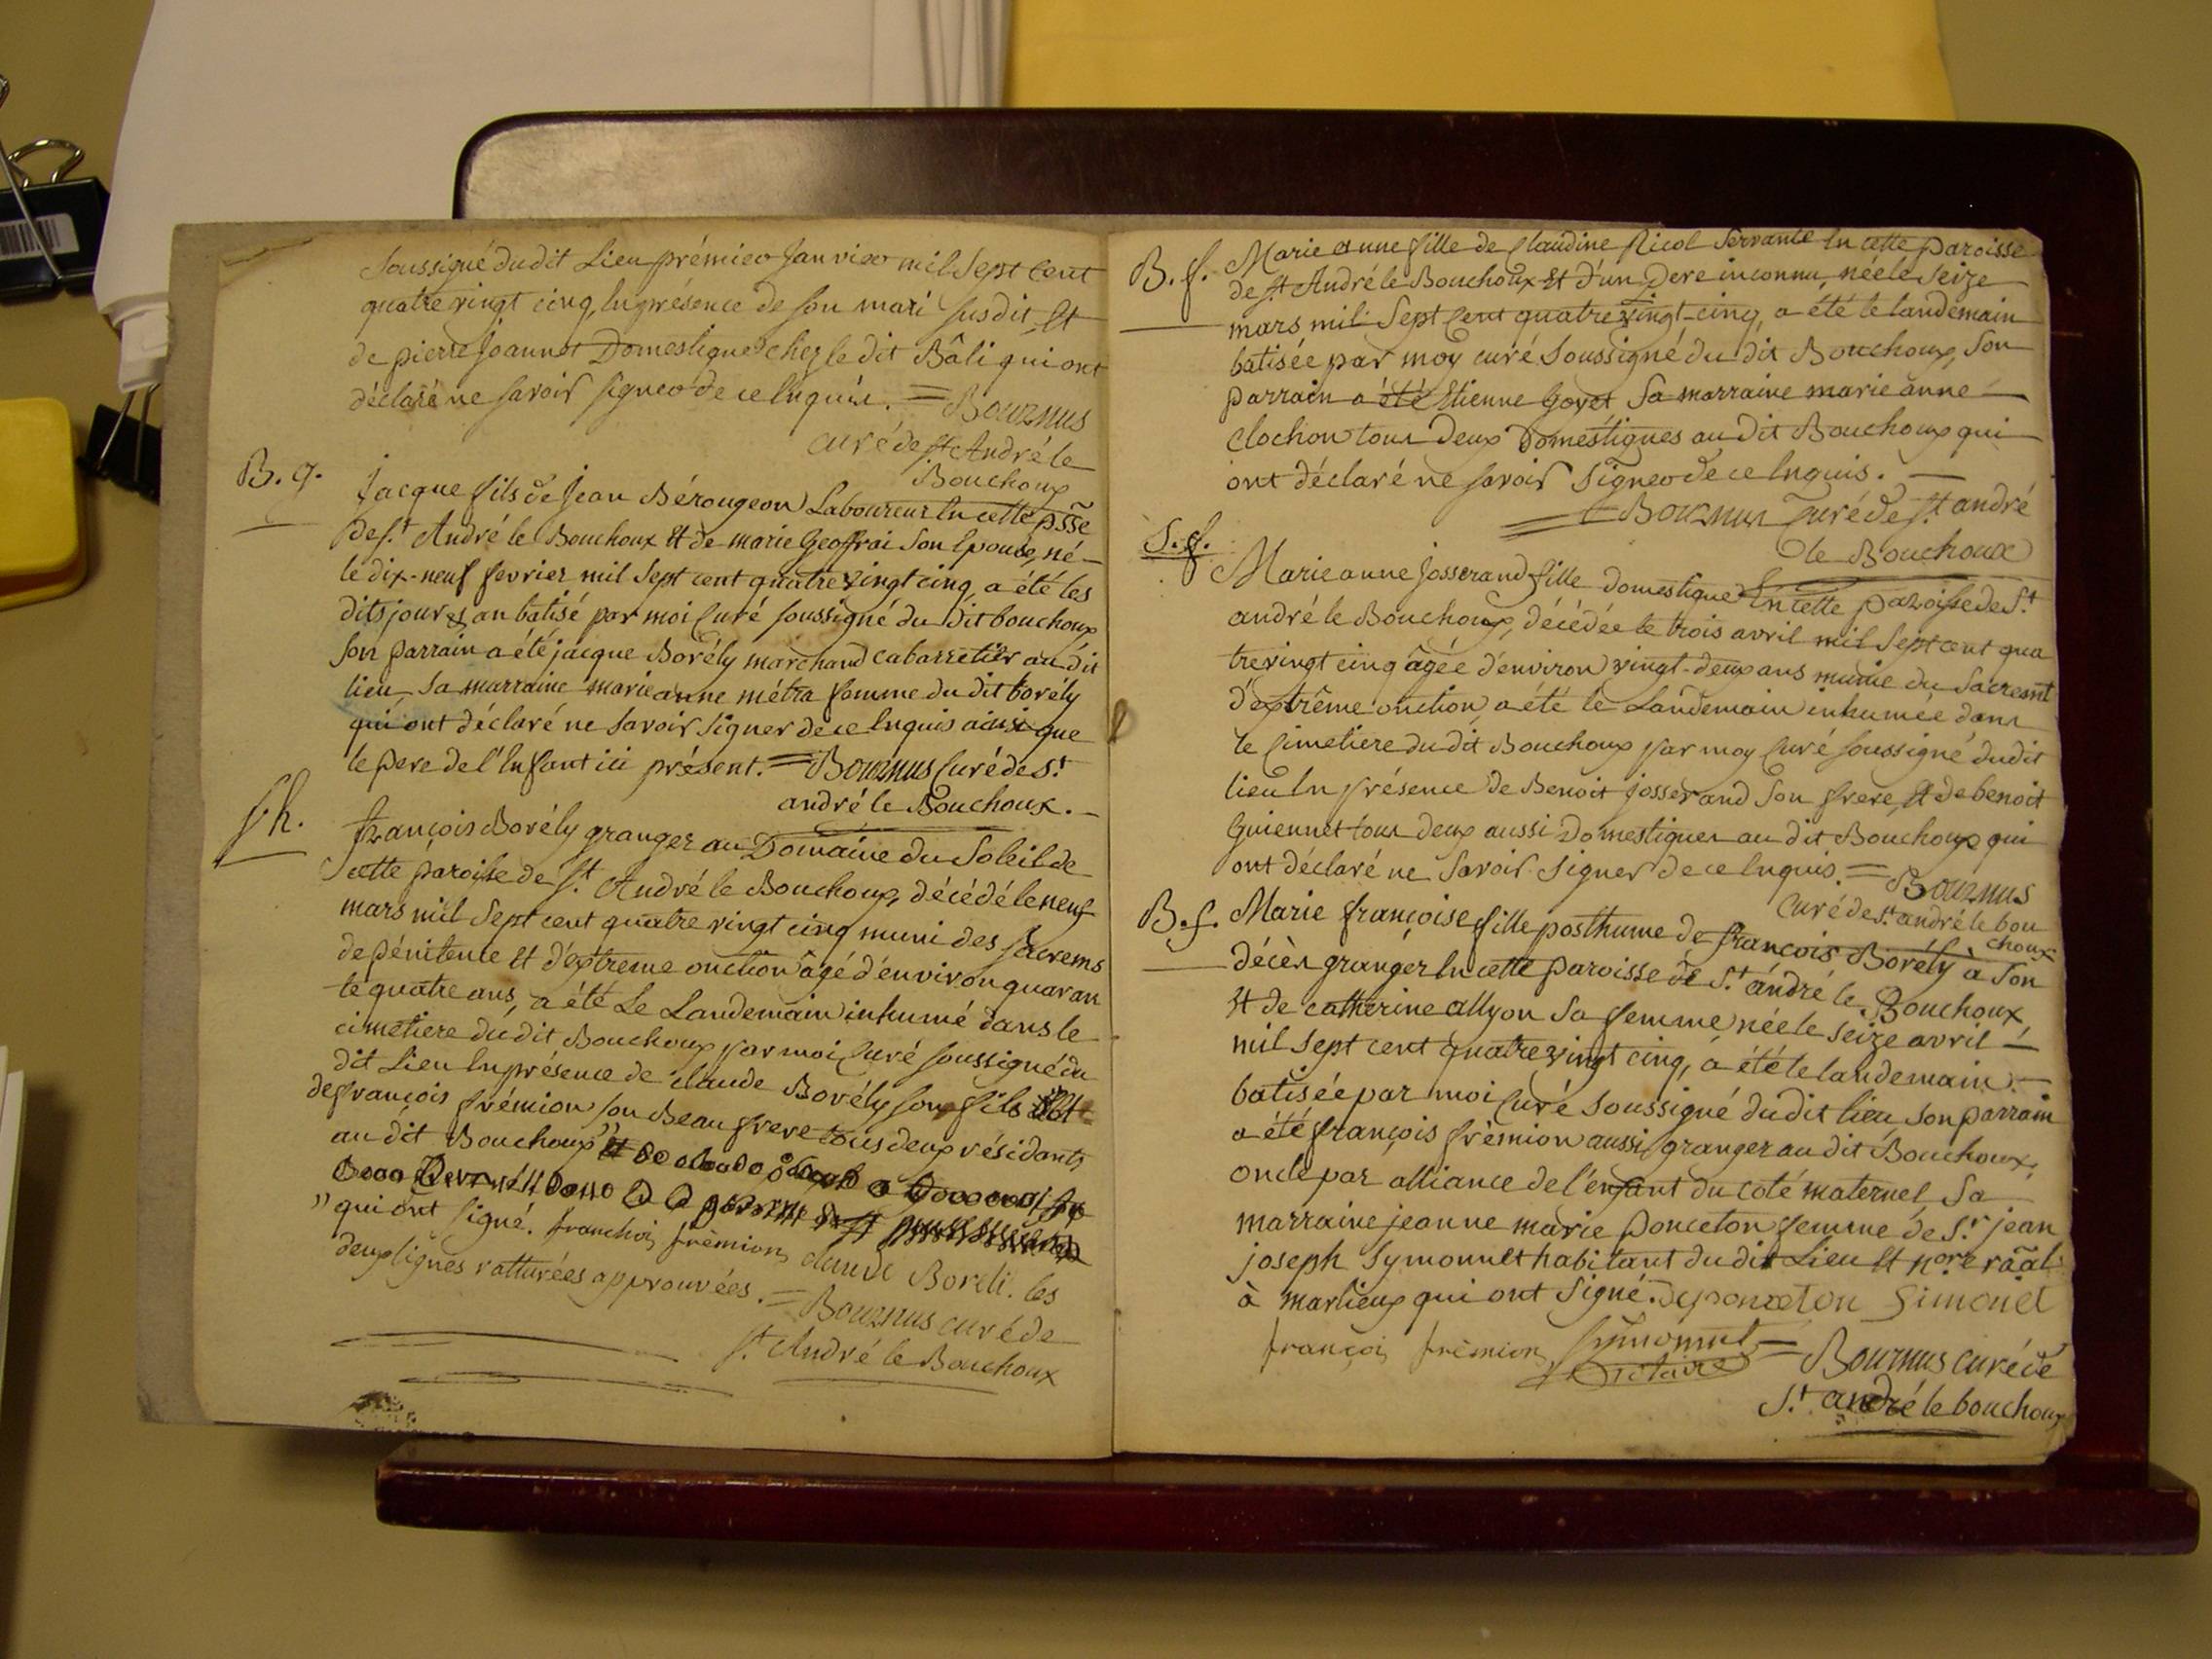 soussigné dudit Lieu prémier janvier mil Sept Cent
quatre vingt cinq, En présence de son mari susdit, Et
de pierre joannet Domestique chez le dit Bâli qui ont
déclaré ne savoir signer de ce Enquis. = Bournus
curé de st André le
Bouchoux
B. g. jacque fils de jean Bérougeon Laboureur En cette psse
de st André le Bouchoux Et de marie Geoffrai son Epouse, né
le dix-neuf fevrier mil Sept cent quatre vingt cinq, a été les
dits jour & an batisé par moi Curé soussigné du dit bouchoux
Son parrain a été jacque Borély marchand cabarretier au dit
lieu Sa marraine marie anne métra femme du dit borély
qui ont déclaré ne savoir signer de ce Enquis ainsi que
le pere de l'Enfant ici présent. = Bournus Curé de st
andré le Bouchoux.
S h. françois Borély granger au Domaine du Soleil de
cette paroisse de st André le Bouchoux, décédé le neuf
mars mil Sept cent quatre vingt cinq muni des Sacrems
de pénitence Et d'extreme onction âgé d'environ quaran
te quatre ans, a été Le Landemain inhumé dans le
cimetiere dudit Bouchoux par moi Curé soussigné du
dit Lieu En présence de claude Borély son fils Et
de françois frémion son Beau frere tous deux résidants
au dit Bouchoux "
" qui ont signé. franchoi frèmion claude Boreli. les
deux lignes ratturées approuvées. = Bournus curé de
st André le Bouchoux
B. f. Marie anne fille de Claudine Nicol Servante En cette paroisse
de st André le Bouchoux Et d'un pere inconnu, née le seize
mars mil Sept Cent quatre vingt-cinq, a été le landemain
batisée par moy curé Soussigné du dit Bouchoux, Son
parrain a été Etienne Goyet Sa marraine marie anne
clochon tous deux Domestiques au dit Bouchoux qui
ont déclaré ne savoir Signer de ce Enquis.
= Bournus Curé de st andré
le Bouchoux
S. f. Marie anne josserand fille domestique En cette paroisse de St
andré le Bouchoux, décédée le trois avril mil Sept cent qua
tre vingt cinq âgée d'environ vingt-deux ans munie du Sacremt
d'extrême onction a été le Landemain inhumée dans
le Cimetiere du dit Bouchoux par moy Curé soussigné dudit
lieu En présence de Benoit josserand Son frere, Et de benoit
Guiennet tous deux aussi Domestiques au dit Bouchoux qui
ont déclaré ne Savoir Signer de ce Enquis. = Bournus
Curé de st andré le bou
choux
B. f. Marie françoise fille posthume de françois Borély à Son
décès granger En cette paroisse de St andré le Bouchoux
Et de catherine allyon Sa femme née le Seize avril
mil Sept cent quatre vingt cinq, a été le landemain
batisée par moi Curé Soussigné dudit lieu, Son parrain
a été françois frèmion aussi granger au dit Bouchoux,
oncle par alliance de l'enfant du coté maternel, Sa
marraine jeanne marie Ponceton femme de Sr jean
joseph Symonnet habitant du dit Lieu Et nore râal
à marlieux qui ont Signé. deponceton Simonet
françoi frèmion Symonnet
Notaire = Bournus curé de
St andré le bouchoux